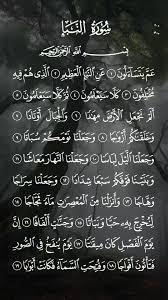 سُورَةُ النَّبَإِ
بِسْمِ اللَّهِ الرَّحْمَٰنِ الرَّحِيمِ
عَمَّ يَتَسَاءَلُونَ ١ عَنِ النَّبَإِ الْعَظِيمِ ٢ الَّذِي هُمْ فِيهِ
مُخْتَلِفُونَ ٣ كَلَّا سَيَعْلَمُونَ ٤ ثُمَّ كَلَّا سَيَعْلَمُونَ ٥
أَلَمْ نَجْعَلِ الْأَرْضَ مِهَادًا ٦ وَالْجِبَالَ أَوْتَادًا ٧
وَخَلَقْنَاكُمْ أَزْوَاجًا ٨ وَجَعَلْنَا نَوْمَكُمْ سُبَاتًا ٩
وَجَعَلْنَا اللَّيْلَ لِبَاسًا ١٠ وَجَعَلْنَا النَّهَارَ مَعَاشًا ١١
وَبَنَيْنَا فَوْقَكُمْ سَبْعًا شِدَادًا ١٢ وَجَعَلْنَا سِرَاجًا
وَهَّاجًا ١٣ وَأَنْزَلْنَا مِنَ الْمُعْصِرَاتِ مَاءً ثَجَّاجًا ١٤
لِنُخْرِجَ بِهِ حَبًّا وَنَبَاتًا ١٥ وَجَنَّاتٍ أَلْفَافًا ١٦ إِنَّ
يَوْمَ الْفَصْلِ كَانَ مِيقَاتًا ١٧ يَوْمَ يُنْفَخُ فِي الصُّورِ
فَتَأْتُونَ أَفْوَاجًا ١٨ وَفُتِحَتِ السَّمَاءُ فَكَانَتْ أَبْوَابًا ١٩